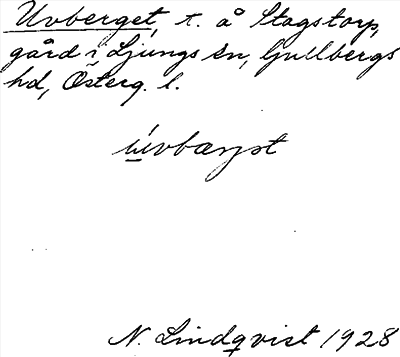 Uvberget, t. å Stagstorp,
gård i Ljungs sn, Gullbergs
hd, Österg. l.
ùvbærjət
N. Lindqvist 1928